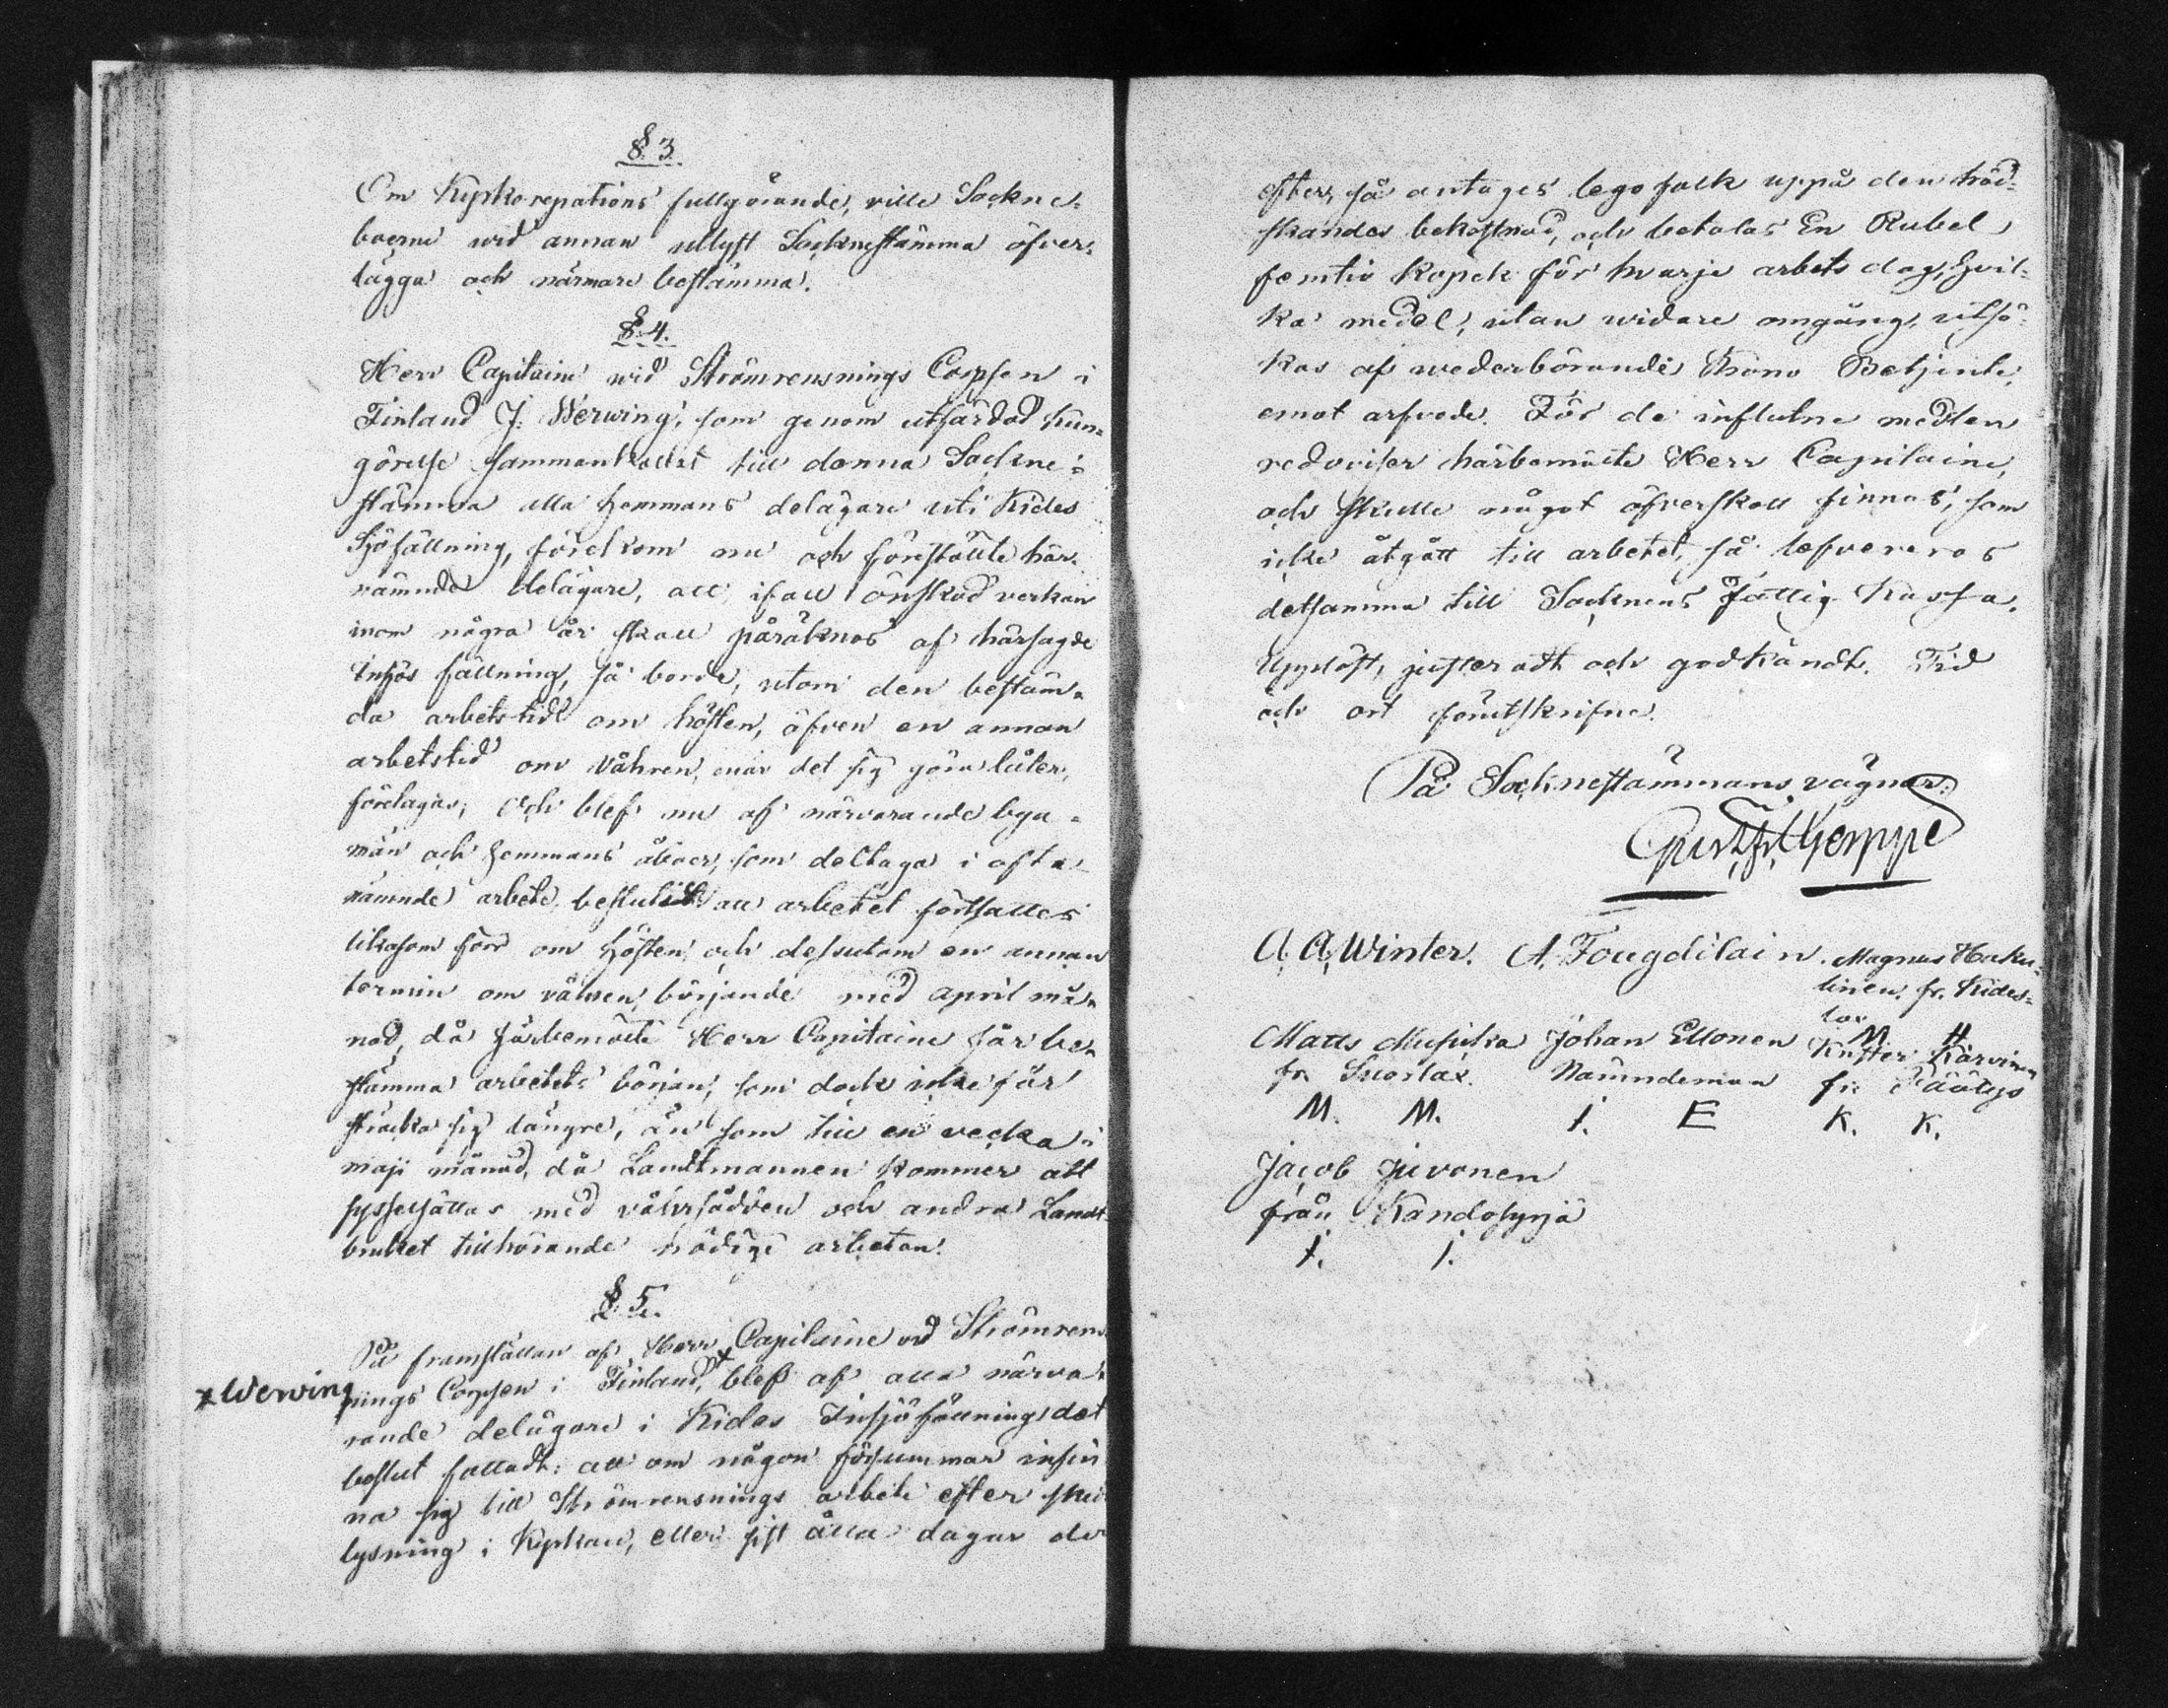 § 3.
Om Kyrkoreparations fullgörande, ville Sockne-
boerne wid annan utlyst Sockne stämma öfver-
lägga och närmare bestämma.
§ 4.
Herr Capitaine wid Strömrensnings Corpsen i
Finland J. Werwing, som genom utfärdad kun-
görelse sammankallat till denna Sockne-
stämma alla hemmans delägare uti Kides
Sjöfällning, förekom nu och föreställte här-
nämnde delägare, att, ifall önskad verkan
inom några år skall påräknas af härsagde
Insjös fällning, så borde, utom den bestäm-
da arbetstid om hösten, äfven en annan
arbetstid om våhren, när det sig göra låter,
företagas; Och blef nu af närvarande bya-
män och hemmans åboer, som deltaga i ofta-
nämnde arbete, beslutit att arbetet fortsattes
likasom förr om hösten och dessutom en annan
termin om våhren, börjande med april må-
nad, då härbemälte Herr Capitaine får be-
stämma arbetets början, som dock icke får
sträcka sig längre, än som till en vecka i
maji månad, då Landtmannen kommer att
sysselsättas med våhrsådden och andra Landt-
bruket tillhörande nödige arbeten.
§ 5.
På framställan af Herr Capitaine vid Strömrens-
x Werving
nings Corpsen i Finland, x blef af alla närva-
rande delägare i Kides Insjöfällning det
beslut fattadt: att om någon försummar infin
na sig till Strömrensnings arbete efter sked
lysning i Kyrkan, eller sist åtta dagar der
efter, så antages legofolk uppå den tröd-
skandes bekostnad, och betalas En Rubel
femtio Kopek för hvarje arbets dag, hvil-
ka medel, utan widare omgång, utsö-
kas af wederbörande Krono Betjente,
emot arfvode. För de influtne medlen
redoviser härbemälte Herr Capitaine,
och skulle något öfverskott finnas, som
icke åtgått till arbetet, så lefvereras
detsamma till Socknens Fattig Kassa.
Uppläst, justeradt och godkändt. Tid
och ort förutskrifne.
På Sockne stämmans vägnar:
A. A. Winter. A. Fougdilain. Magnus Haku-
linen. fr. Kides-
lax
M H
Matts Musicka Johan Ellonen Krister Kärvinen
fr. Suorlax. Nämndeman fr. Päätys
M. M. I. E K. K.
Jacob Juvonen
från Kandosyrjä
I. I.